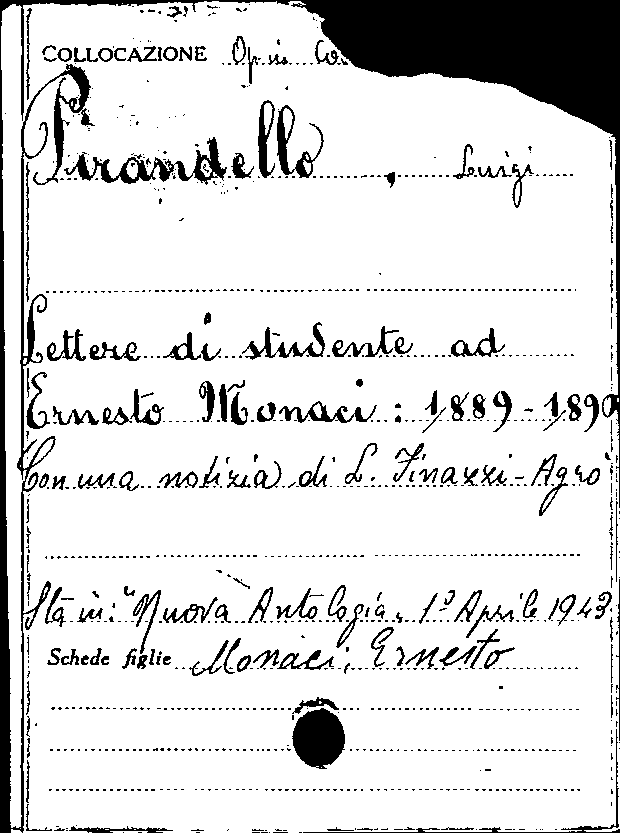 COLLOCAZIONE Op. in
Pirandello, Luigi
Lettere di studente ad
Ernesto Monaci : 1889-1890
Con una notizia di L. Finazzi-Agrò
Sta in: "Nuova Antologia" 1º Aprile 1943.
Schede figlie Monaci, Ernesto